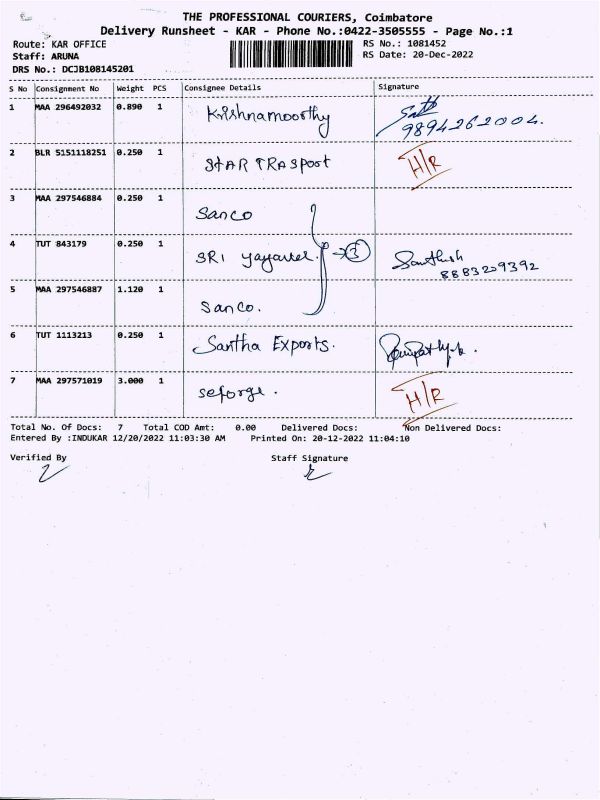 THE PROFESSIONAL COURIERS, Coimbatore
Delivery Runsheet - KAR - Phone No.:0422-3505555 - Page No.:1
Route: KAR OFFICE RS No.: 1081452
Staff: ARUNA RS Date: 20-Dec-2022
DRS No.: DCJB108145201
S No Consignment No Weight PCS Consignee Details Signature
1 MAA 296492032 0.890 1 Krishnamoorthy
9894262004.
2 BLR 5151118251 0.250 1 STAR TRASport H/R
3 MAA 297546884 0.250 1 Sanco
4 TUT 843179 0.250 1 SRI → 3 Santhosh
8883209392
5 MAA 297546887 1.120 1 Sanco.
6 TUT 1113213 0.250 1 Santha Exports.
7 MAA 297571019 3.000 1 seforge. H/R
Total No. Of Docs: 7 Total COD Amt: 0.00 Delivered Docs: Non Delivered Docs:
Entered By :INDUKAR 12/20/2022 11:03:30 AM Printed On: 20-12-2022 11:04:10
Verified By Staff Signature